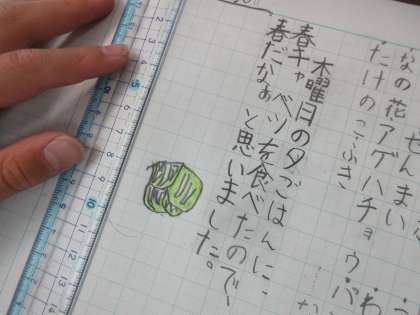 ぜんまい
なの花アゲハチョウ・バ
たけのこふき
木曜日の夕ごはんに
春キャベツを食べたので、
春だなぁと思いました。
5
10